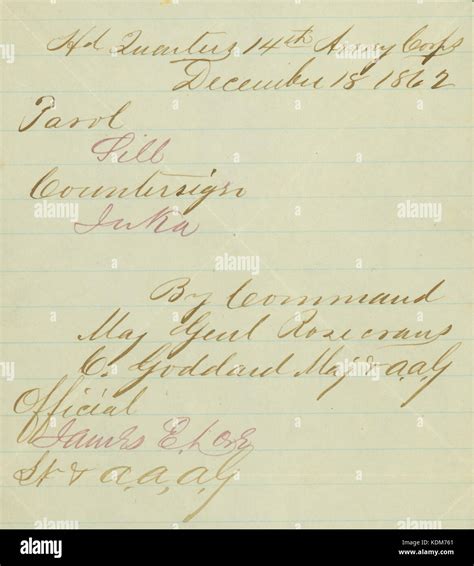 Hd Quarters 14th Army Corps
December 18 1862
Parol
Sill
Countersign
Iuka
By Command
Maj Genl Rosecrans
C. Goddard Maj & a.a.G
Official
James E. Love
Lt & a.a.a.G
alamy stock photo
KDM761
www.alamy.com